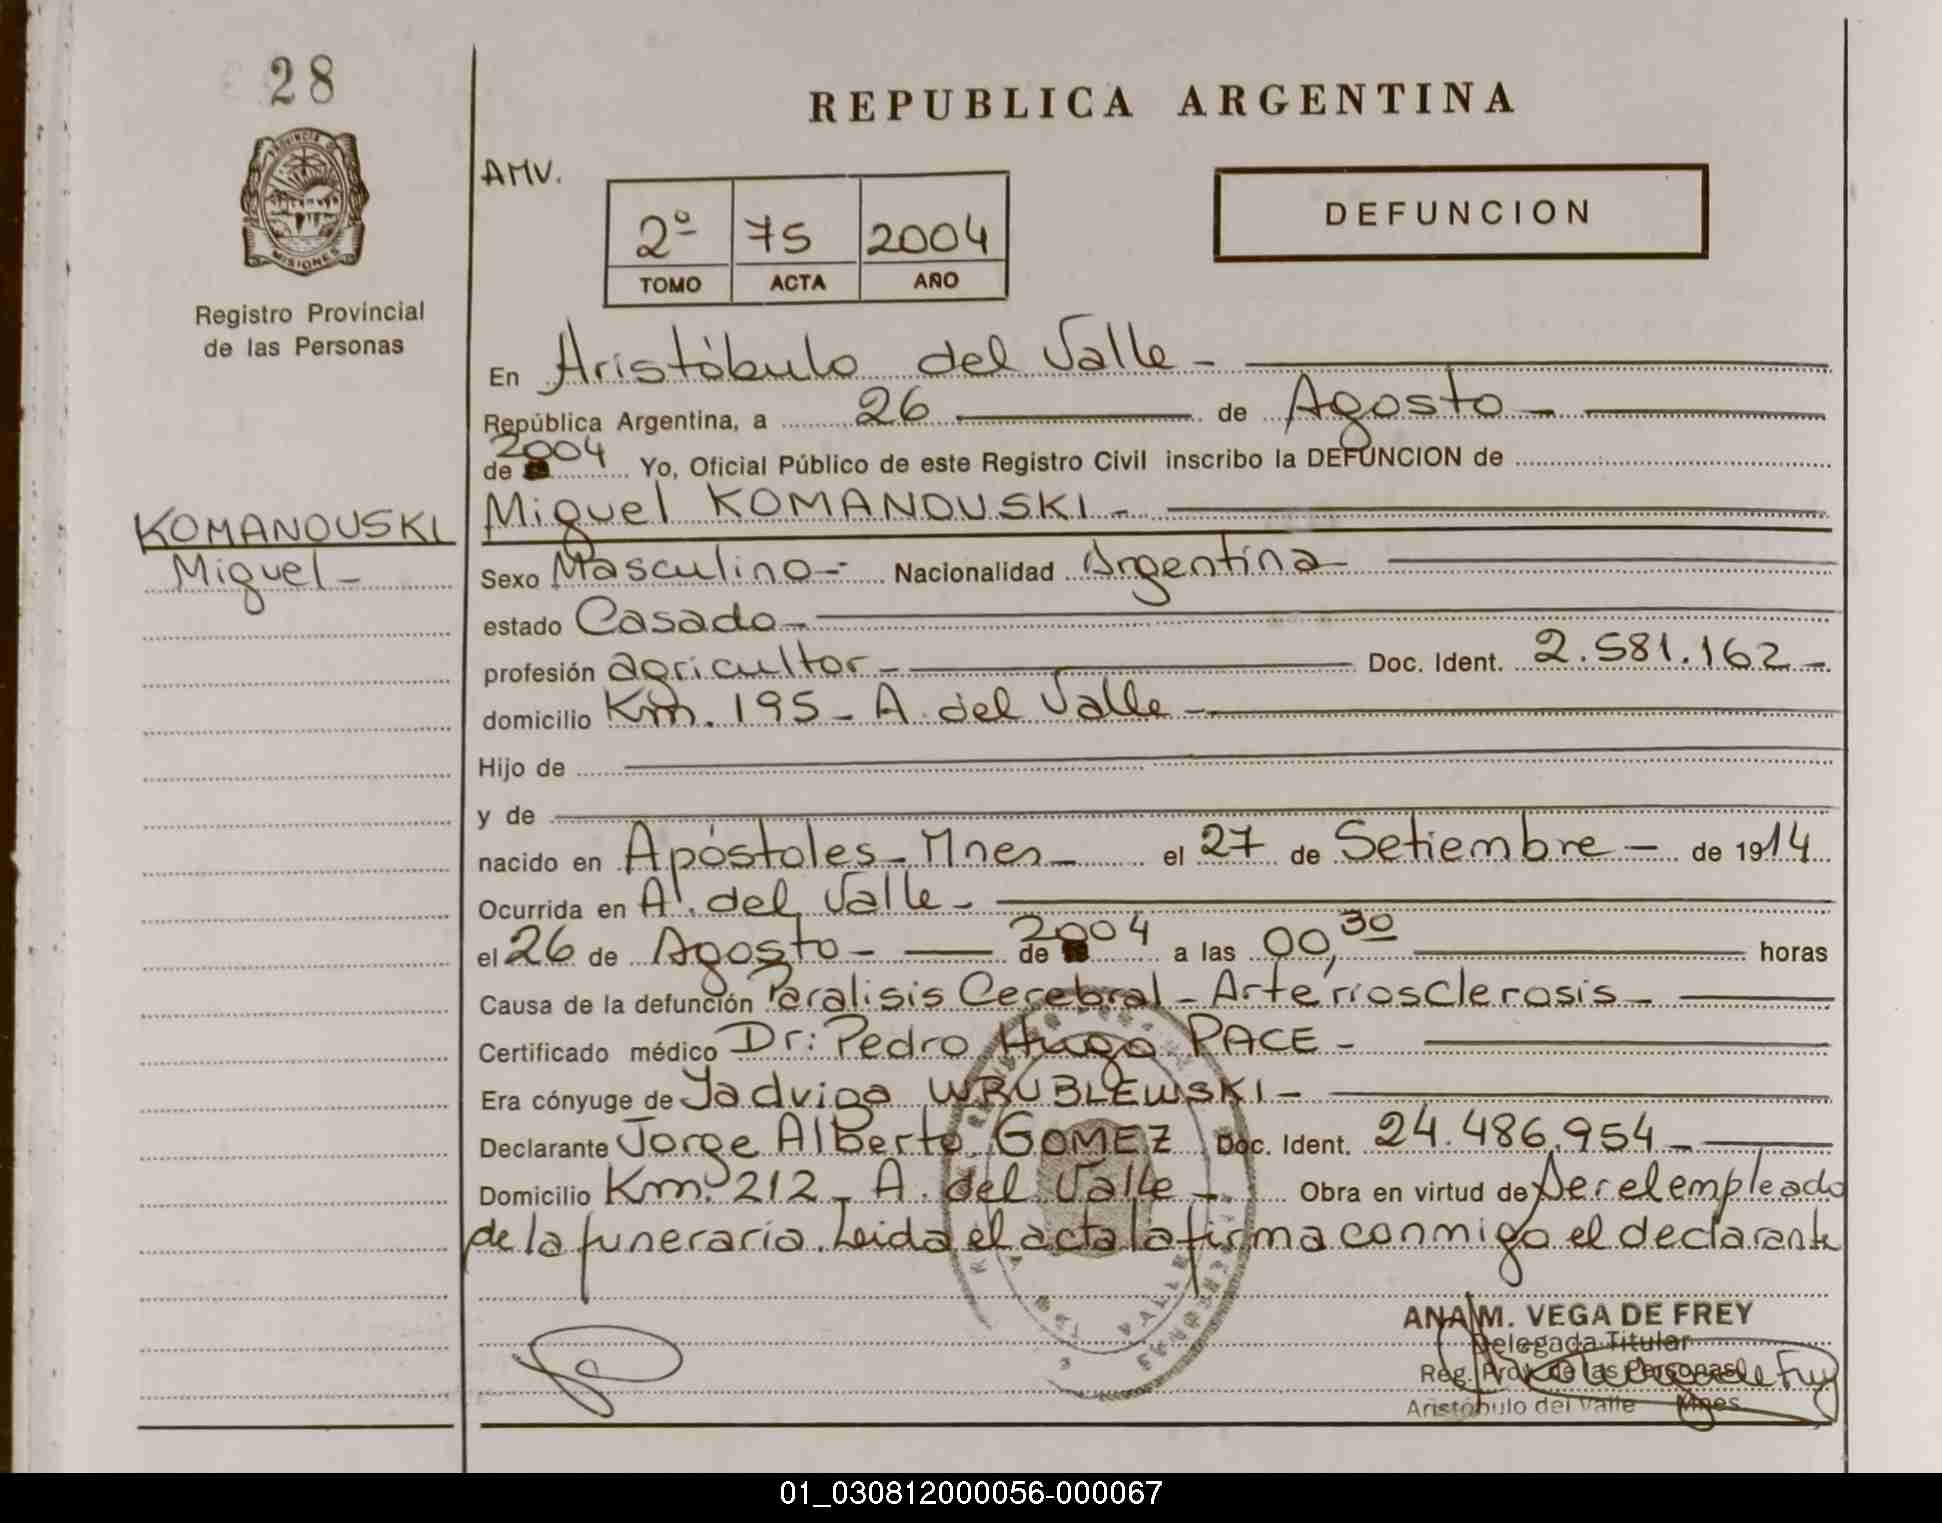 28
REPUBLICA ARGENTINA
AMV.
2º 75 2004
TOMO ACTA AÑO
DEFUNCION
PROVINCIA D
MISIONES
Registro Provincial
de las Personas
KOMANOUSKI
Miguel -
En Aristóbulo del Valle -
República Argentina, a 26 de Agosto -
de 2004 Yo, Oficial Público de este Registro Civil inscribo la DEFUNCION de
Miguel KOMANOUSKI -
Sexo Masculino - Nacionalidad Argentina
estado Casado -
profesión agricultor - Doc. Ident. 2.581.162 -
domicilio Km. 195 - A. del Valle -
Hijo de
y de
nacido en Apóstoles - Mnes - el 27 de Setiembre - de 1914
Ocurrida en A. del Valle -
el 26 de Agosto - de 2004 a las 00,30 horas
Causa de la defunción Paralisis Cerebral - Arteriosclerosis -
Certificado médico Dr: Pedro Hugo PACE -
Era cónyuge de Yadviga WRUBLEWSKI -
Declarante Jorge Alberto GOMEZ Doc. Ident. 24.486.954 -
Domicilio Km. 212 - A. del Valle - Obra en virtud de Ser el empleado
de la funeraria. Leida el acta la firma conmigo el declarante
ANA M. VEGA DE FREY
Delegada Titular
Reg. Prov. de las Personas
Aristóbulo del Valle Mnes
01_030812000056-000067